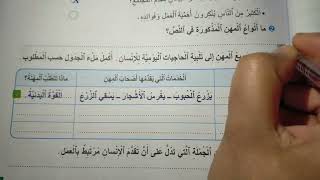 • الكثير من الناس ينكرون أهمية العمل وفوائده.
2 ما أنواع المهن المذكورة في النص؟
المهن إلى تلبية الحاجيات اليومية للإنسان. أكمل ملء الجدول حسب المطلوب
الخدمات التي يقدمها أصحاب المهن
ماذا تتطلب المهنة؟
يزرع الحبوب – يغرس الأشجار – يسقي الزرع
القوة البدنية.
الجملة التي تدل على أن تقدم الإنسان مرتبط بالعمل.